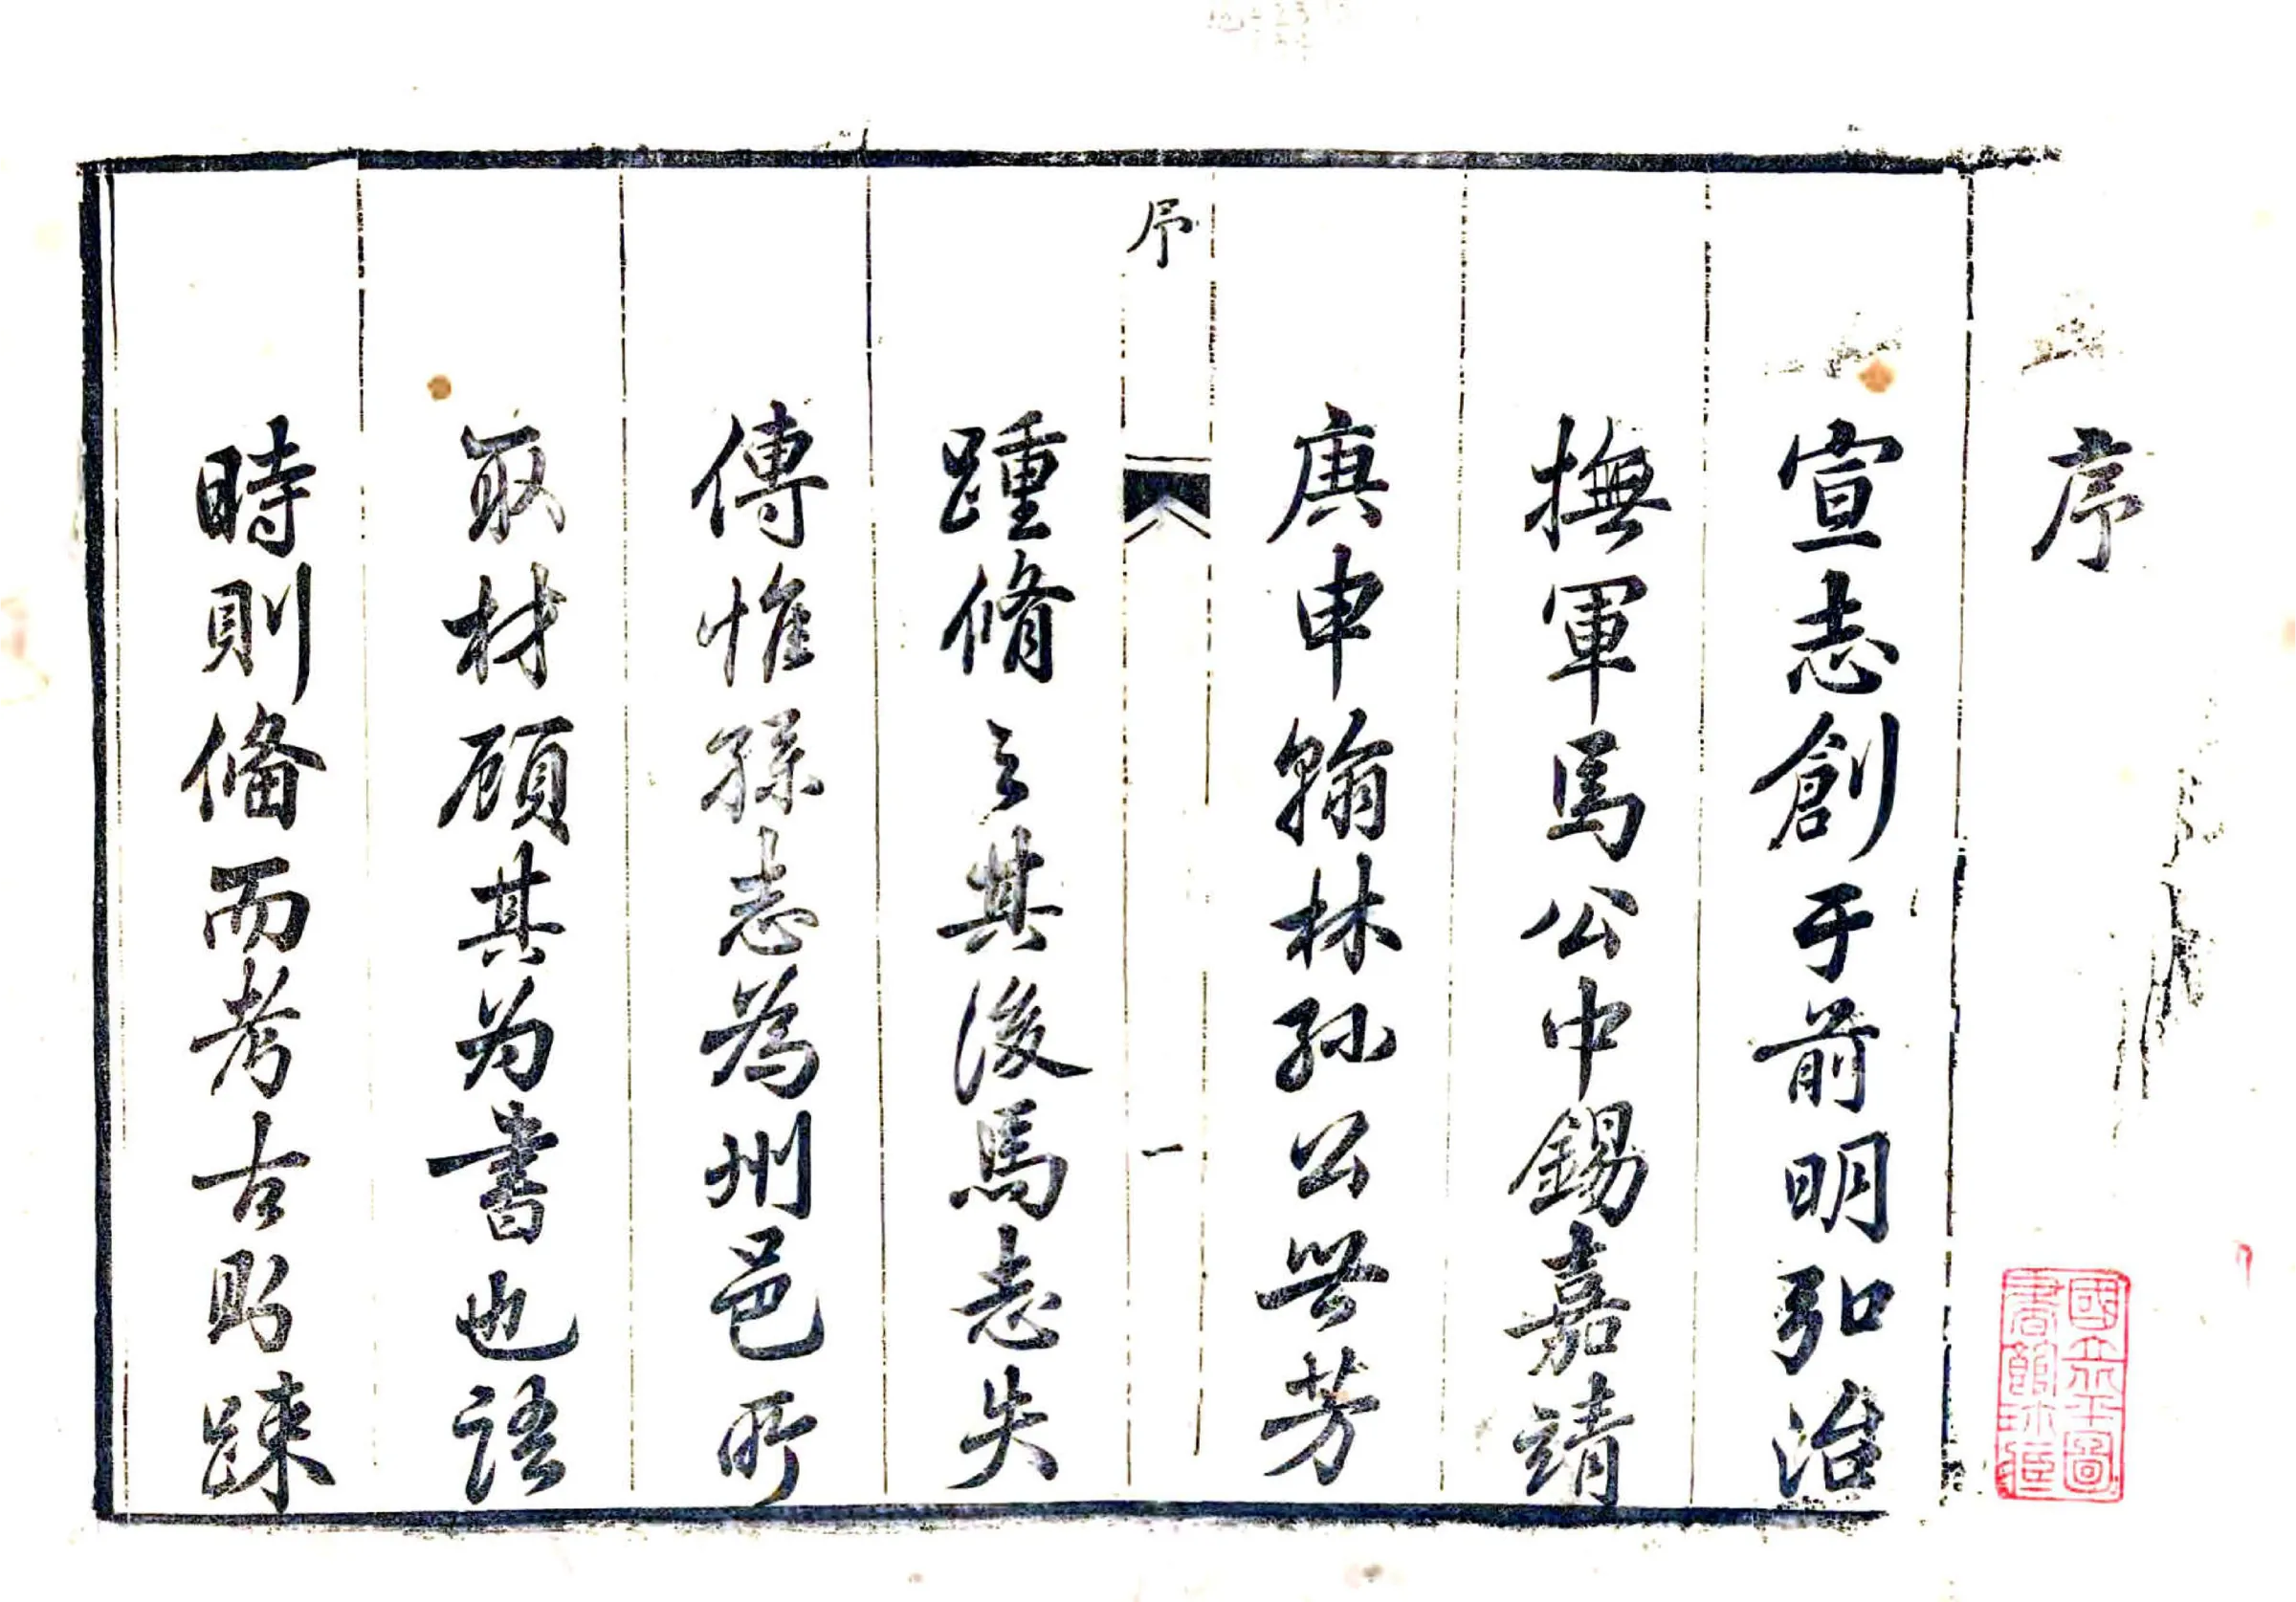 序
宣志創于前明弘治
撫軍馬公中錫嘉靖
庚申翰林孫公世芳
序
一
踵脩之其後馬志失
傳惟孫志為州邑所
取材顧其为書也語
時則俻而考古則踈
國立北平圖
書館珍藏